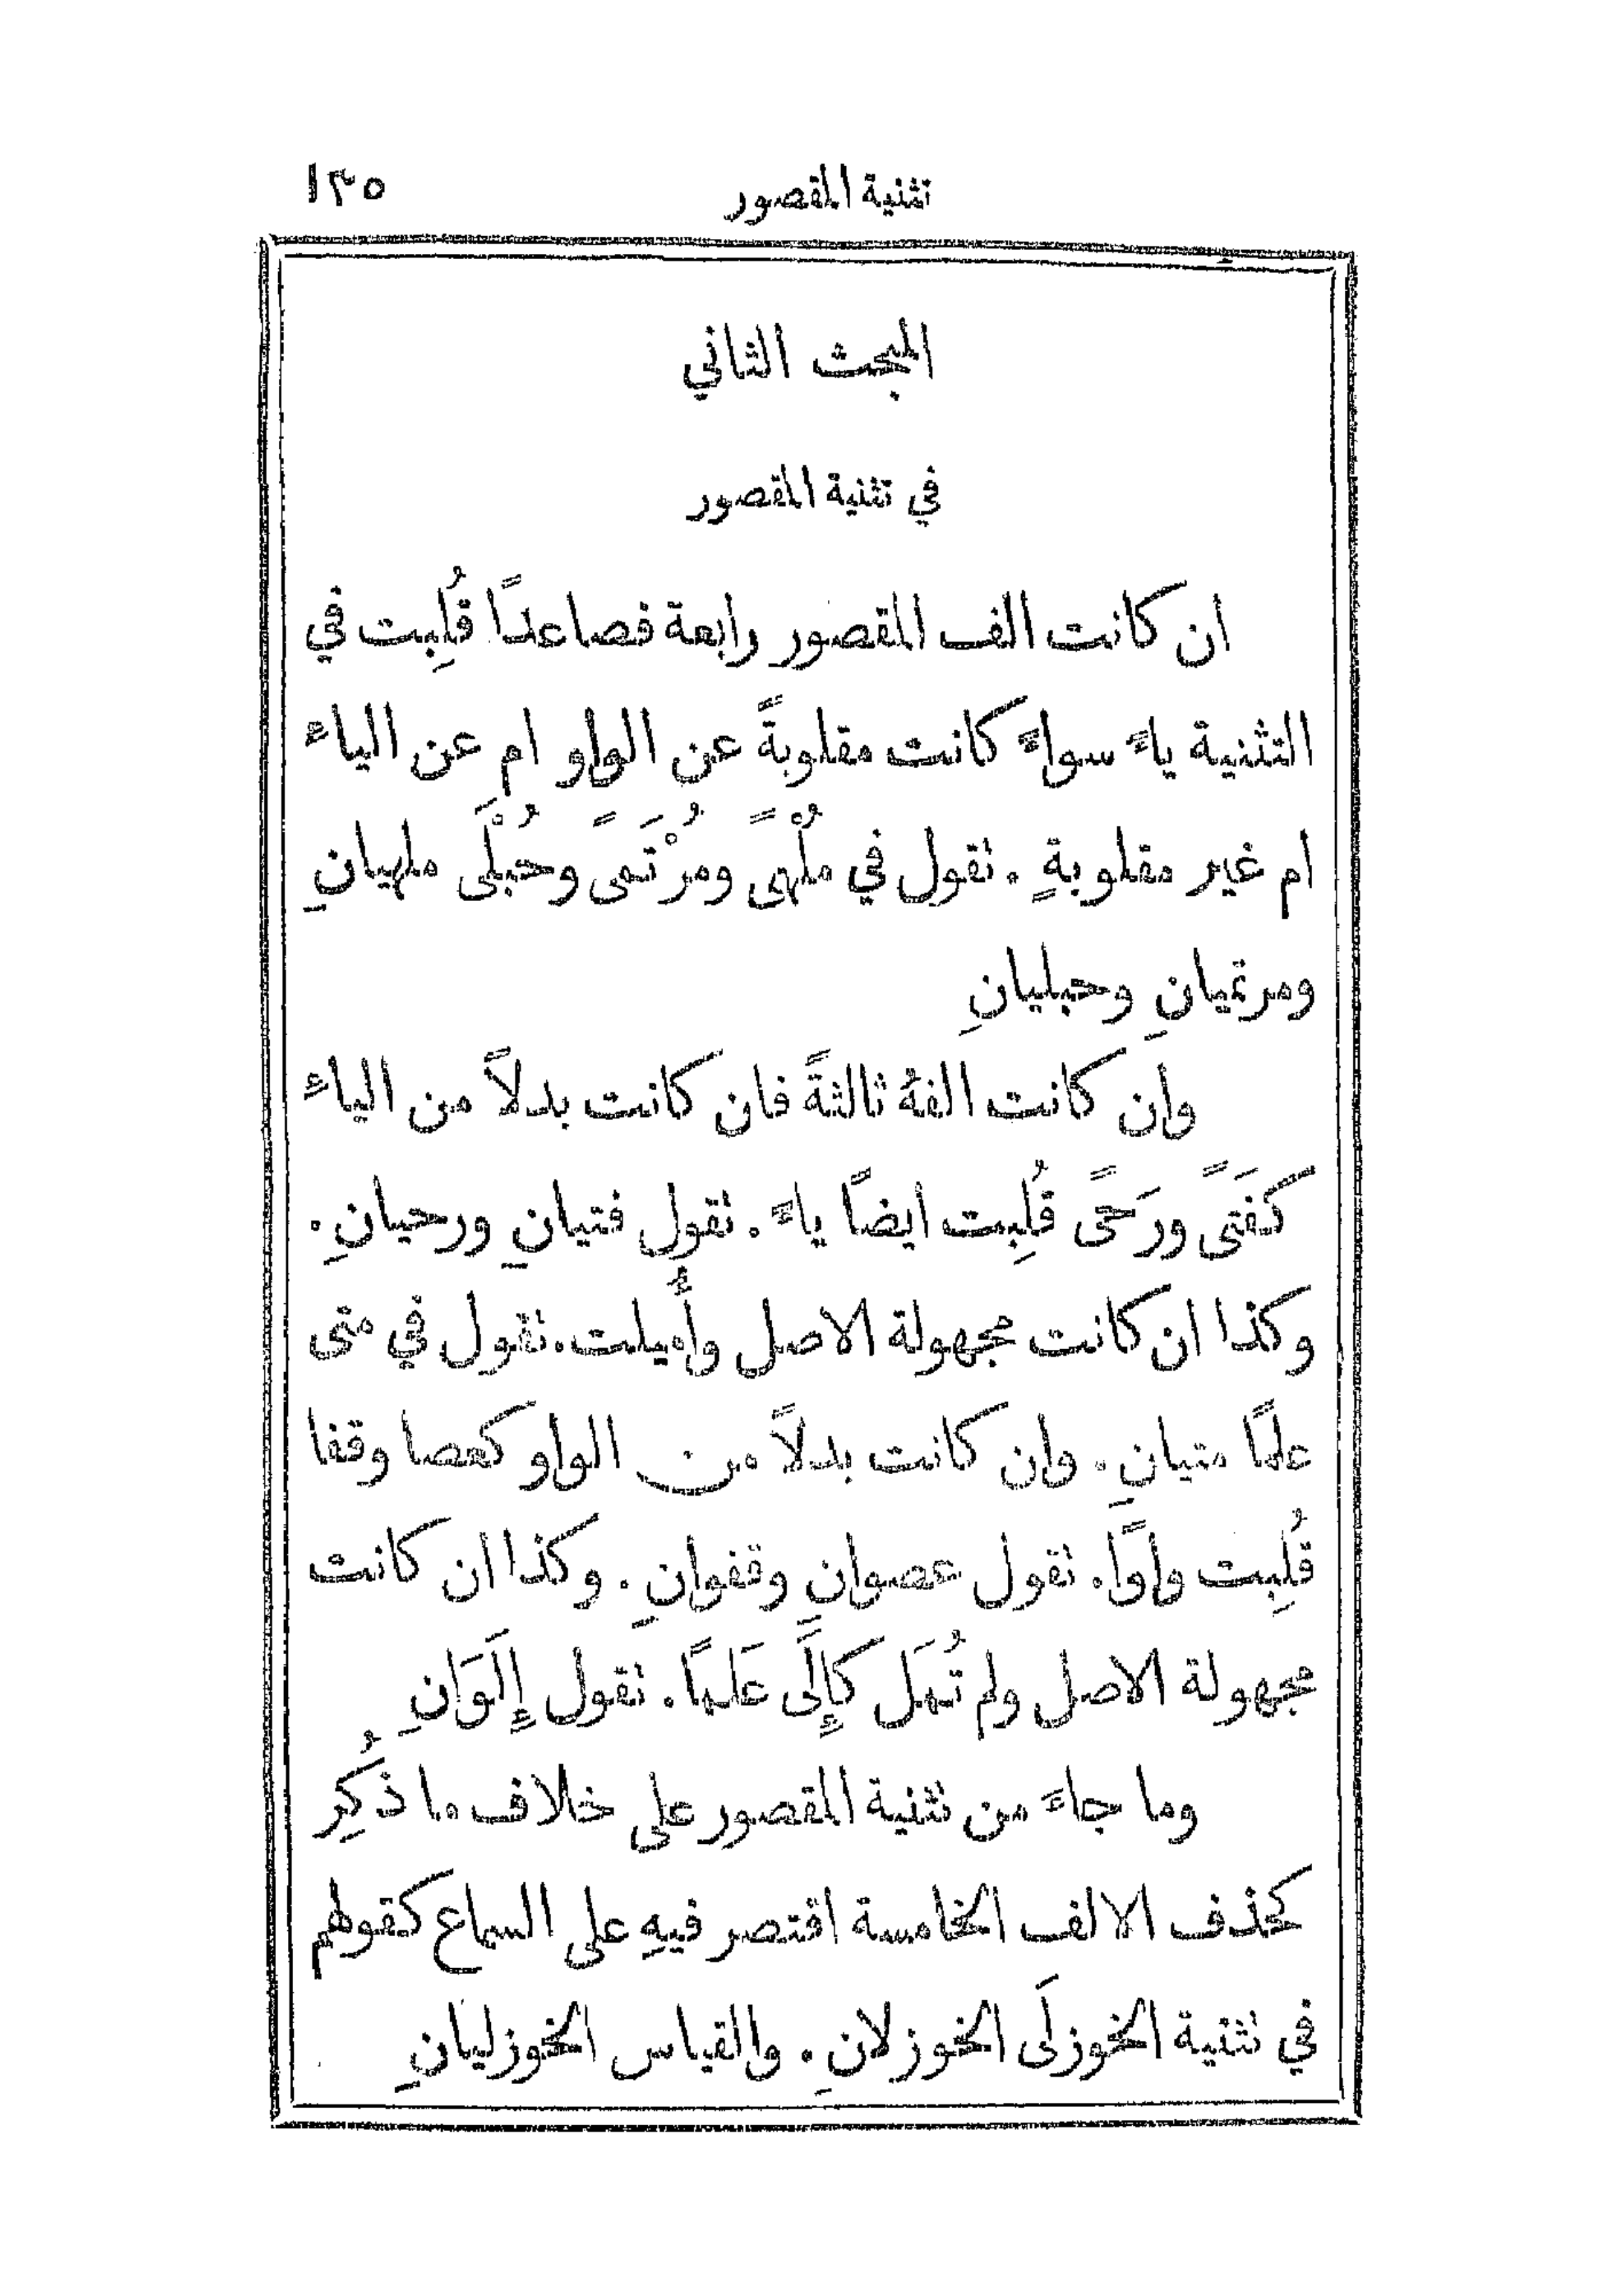 تثنية المقصور ١٣٥
المبحث الثاني
في تثنية المقصور
ان كانت الف المقصور رابعة فصاعدًا قُلِبت في
التثنية ياءً سواءً كانت مقلوبةً عن الواو ام عن الياءِ
ام غير مقلوبةٍ . نقول في مُلْهًى ومُرْتَمًى وحُبْلَى ملهيانِ
ومرتميانِ وحبليانِ
وان كانت الفهُ ثالثةً فان كانت بدلاً من الياءِ
كَفَتًى ورَحًى قُلِبت ايضًا ياءً . نقول فتيانِ ورحيانِ .
وكذا ان كانت مجهولة الاصل وأُميلت . نقول في متى
علمًا متيانِ . وان كانت بدلاً من الواو كعصا وقفا
قُلِبت واوًا . نقول عصوانِ وقفوانِ . وكذا ان كانت
مجهولة الاصل ولم تُمَل كإِلَى عَلمًا . نقول إِلَوَانِ
وما جاءَ من تثنية المقصور على خلاف ما ذُكِر
كحذف الالف الخامسة اقتصر فيهِ على السماع كقولهم
في تثنية الخوزلَى الخوزلانِ . والقياس الخوزليانِ